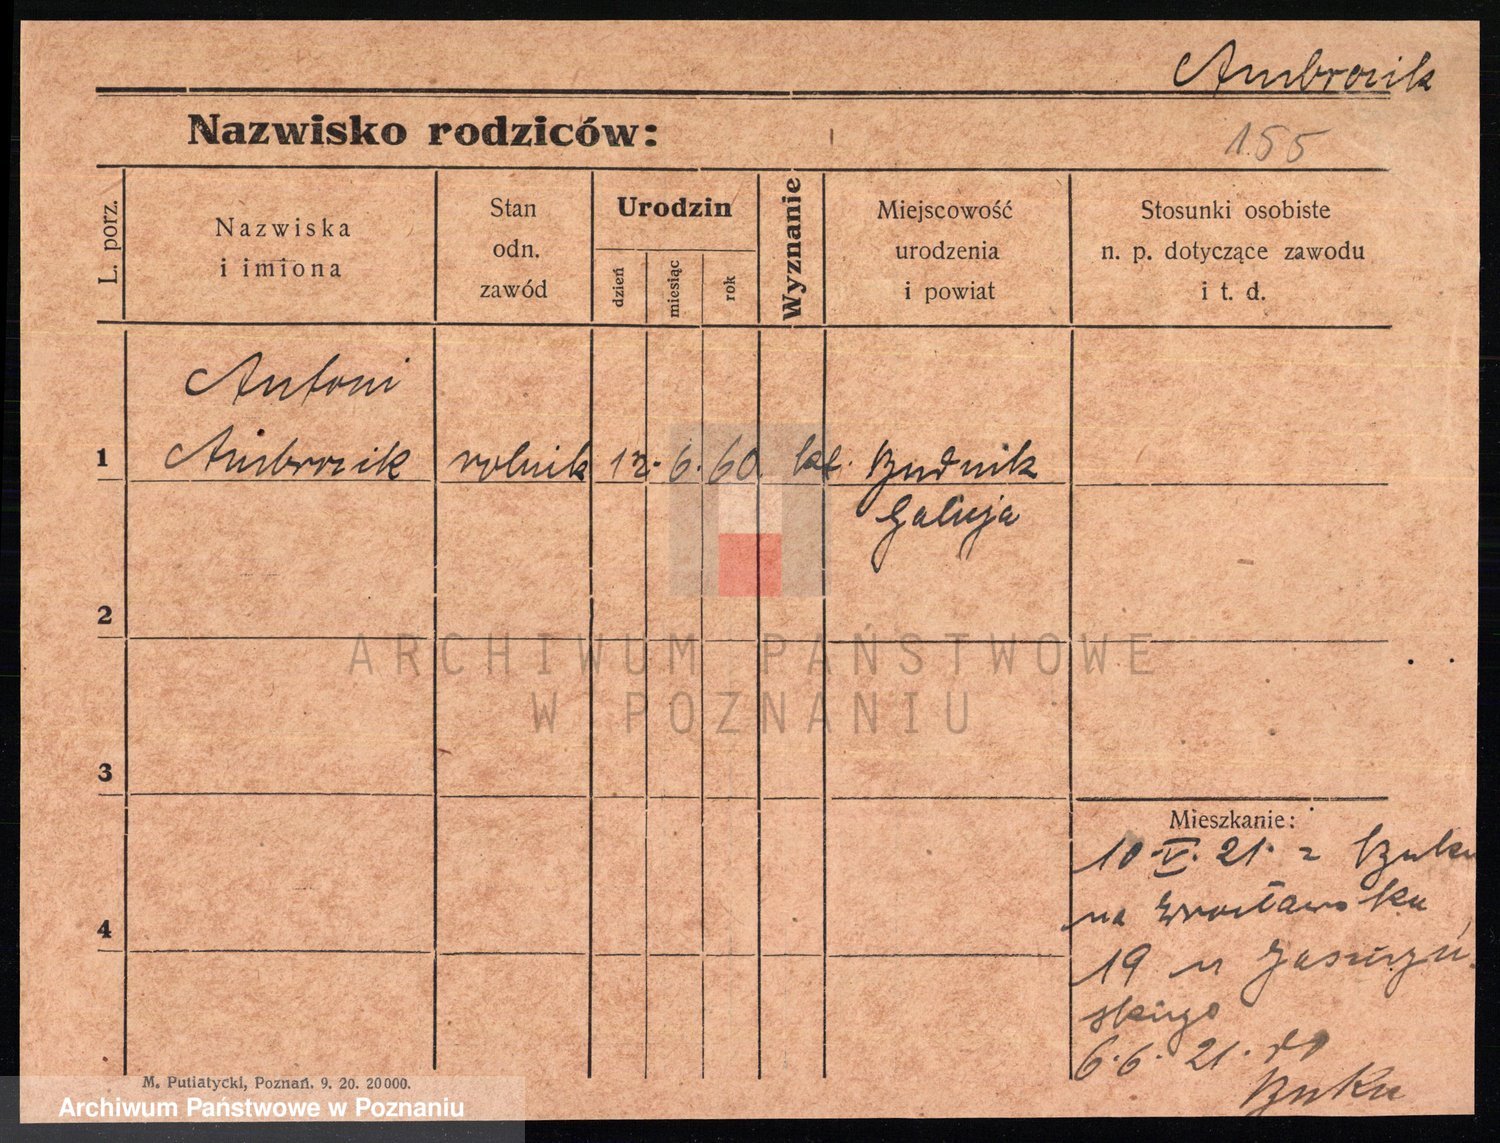 Ambrozik
Nazwisko rodziców:
155
L. porz.
Nazwiska
i imiona
Stan
odn.
zawód
Urodzin
dzień
miesiąc
rok
Wyznanie
Miejscowość
urodzenia
i powiat
Stosunki osobiste
n. p. dotyczące zawodu
i t. d.
Antoni
1 Ambrozik rolnik 12. 6. 60. kt. Budnik
Galicja
2
ARCHIWUM PAŃSTWOWE
W POZNANIU
3
Mieszkanie:
10.V.21. z Buku
na Wrocławska
4
19 u Jaszczyń
skiego
6.6.21. do
Buku
M. Putiatycki, Poznań. 9. 20. 20000.
Archiwum Państwowe w Poznaniu